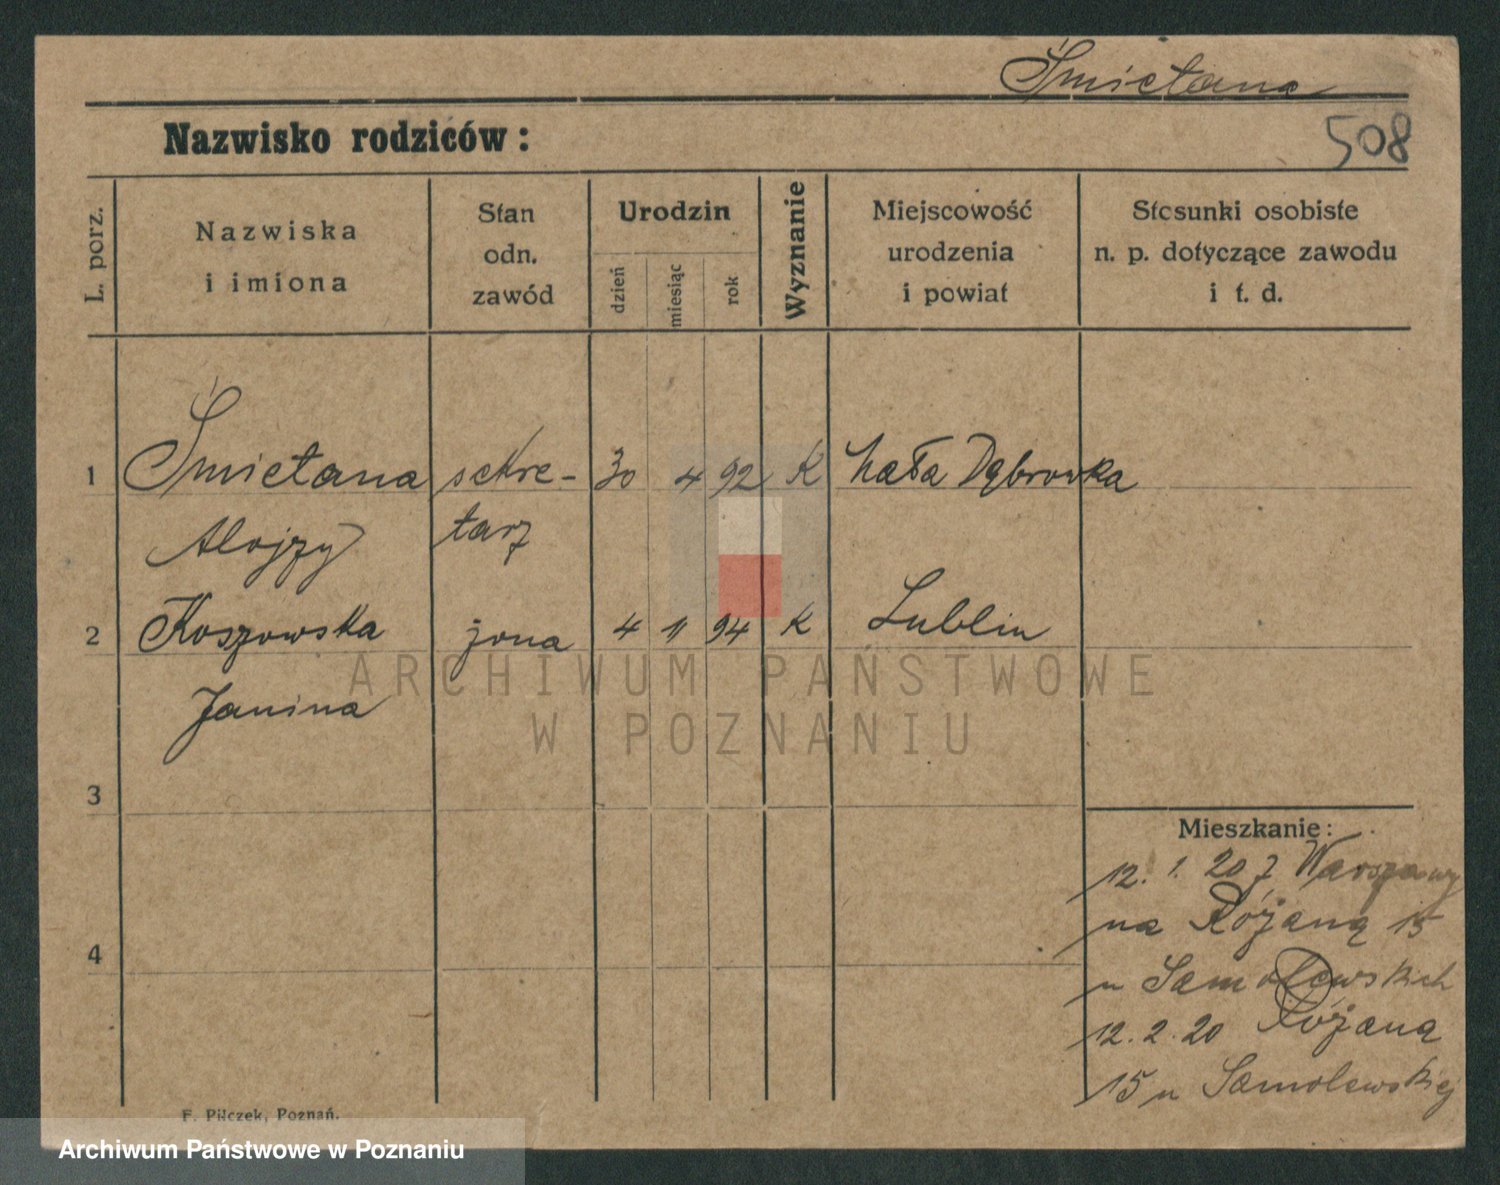 Śmietana
Nazwisko rodziców:
508
L. porz.
Nazwiska
i imiona
Stan
odn.
zawód
Urodzin
dzień
miesiąc
rok
Wyznanie
Miejscowość
urodzenia
i powiat
Stosunki osobiste
n. p. dotyczące zawodu
i t. d.
1 Śmietana sekre- 30 4 92 K Mała Dąbrowka
Alojzy tarz
2 Koszowska żona 4 11 94 K Lublin
Janina
ARCHIWUM PAŃSTWOWE
W POZNANIU
3
Mieszkanie:
12. 1. 20 z Warszawy
na Różaną 15
u Samolewskich
4
12. 2. 20 Różaną
15 u Samolewskiej
F. Pilczek, Poznań.
Archiwum Państwowe w Poznaniu